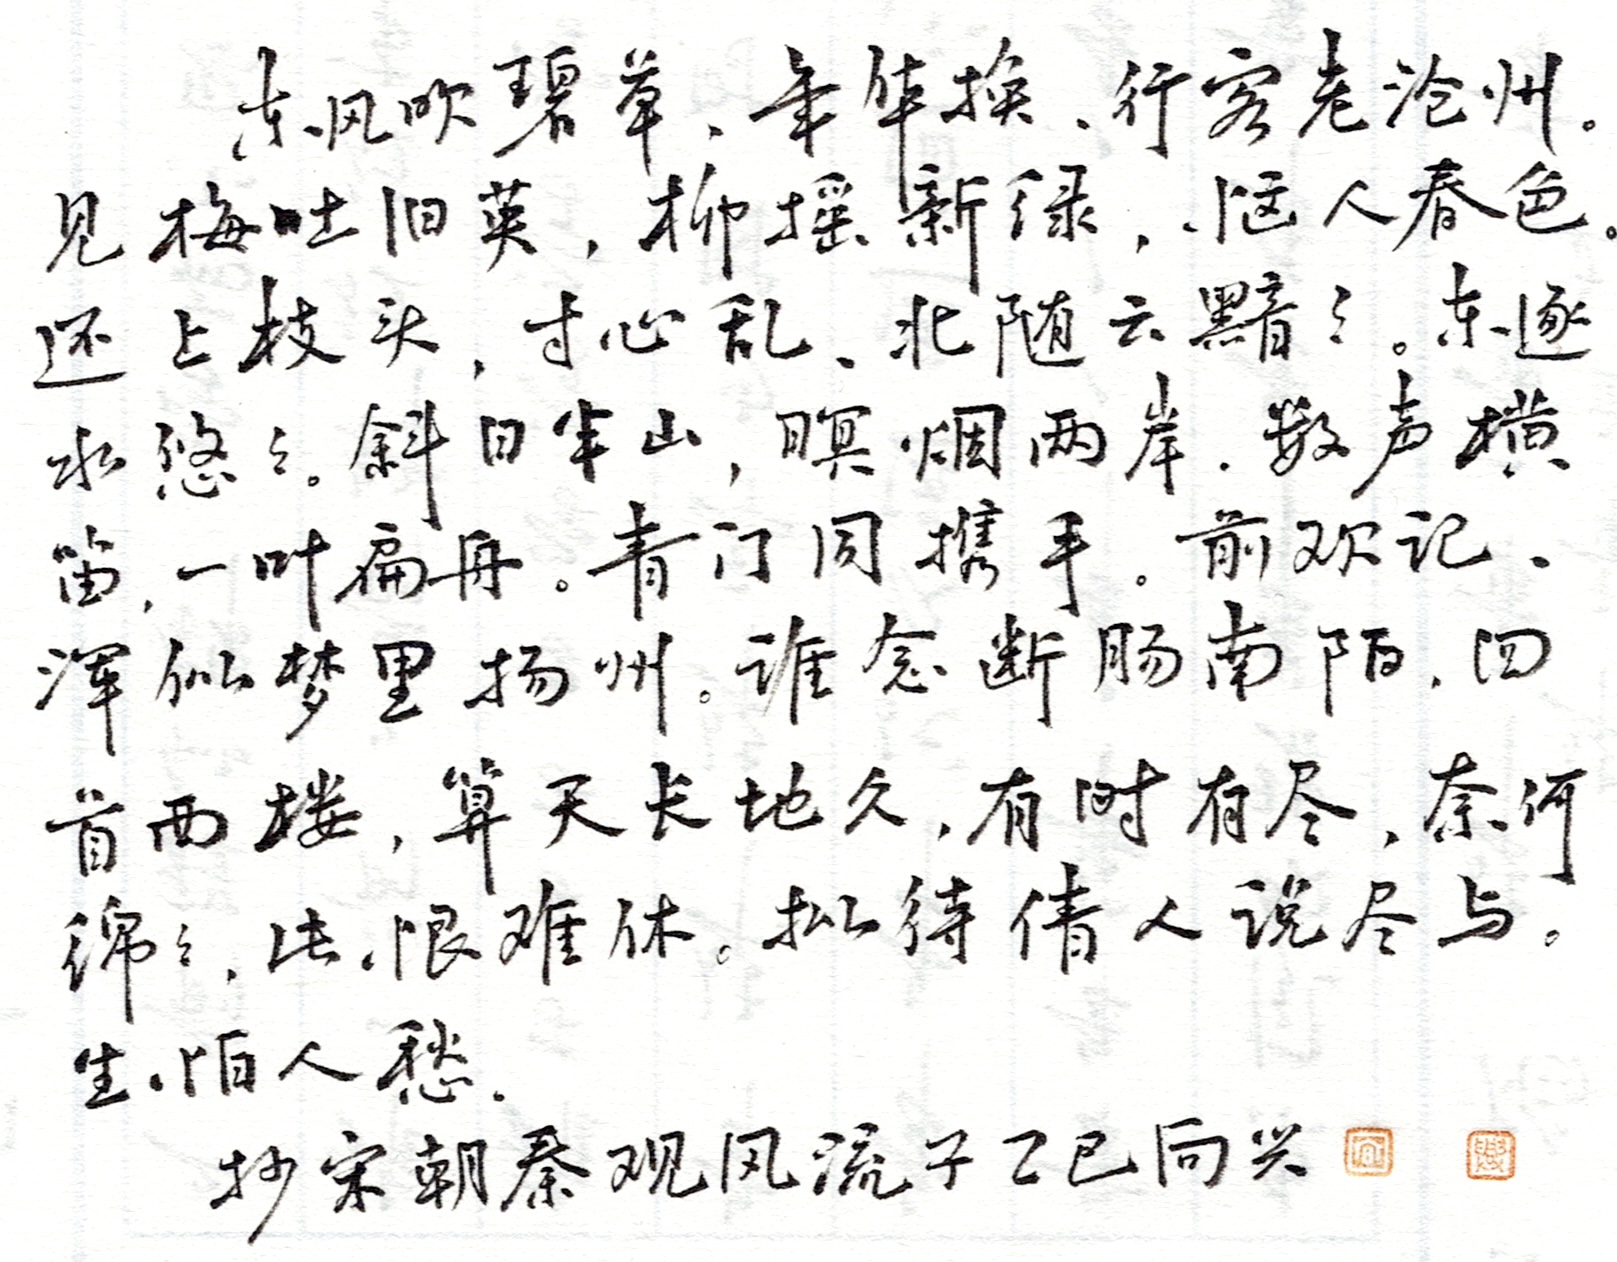 东风吹碧草、年华换、行客老沧州。
见梅吐旧英，柳摇新绿，恼人春色。
还上枝头，寸心乱、北随云黯々。东逐
水悠々。斜日半山，暝烟两岸．数声横
笛，一叶扁舟。青门同携手。前欢记、
浑似梦里扬州。谁念断肠南陌．回
首西楼，算天长地久，有时有尽，奈何
绵々，此恨难休。拟待倩人说尽与。
生怕人愁．
抄宋朝秦观风流子乙巳向兴